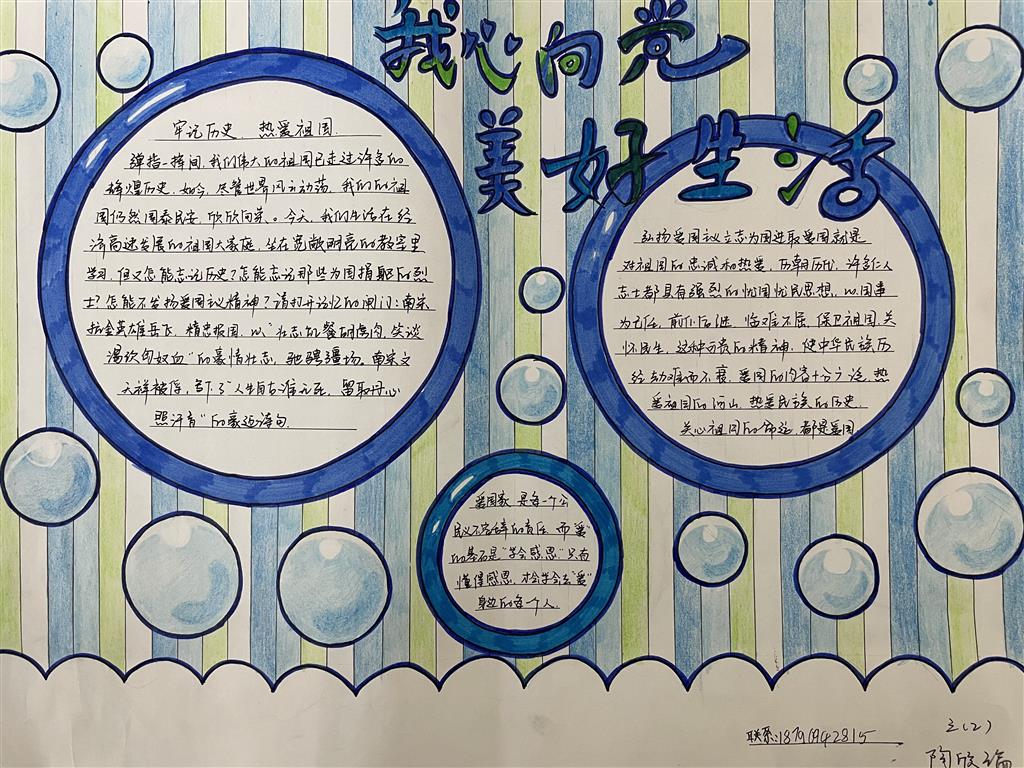 我心向党
美好生活
牢记历史、热爱祖国
弹指一挥间,我们伟大的祖国已走过许多的
辉煌历史,如今,尽管世界风云动荡,我们的祖
国仍然国泰民安,欣欣向荣。今天,我们生活在经
济高速发展的祖国大家庭,坐在宽敞明亮的教室里
学习,但又怎能忘记历史?怎能忘记那些为国捐躯的烈
士?怎能不发扬爱国议精神?请打开记忆的闸门:南宋
抗金英雄岳飞,精忠报国,以“壮志饥餐胡虏肉,笑谈
渴饮匈奴血”的豪情壮志,驰骋疆场,南宋文
天祥被俘,留下了“人生自古谁无死,留取丹心
照汗青”的豪迈诗句
弘扬爱国议立志为国进取爱国就是
对祖国的忠诚和热爱,历朝历代,许多仁人
志士都具有强烈的忧国忧民思想,以国事
为己任,前仆后继,临难不屈,保卫祖国,关
怀民生,这种可贵的精神,使中华民族历
经劫难而不衰,爱国的内容十分广泛,热
爱祖国的河山,热爱民族的历史,
关心祖国的命运,都是爱国
爱国家 是每一个公
民义不容辞的责任,而“爱”
的基石是“学会感恩”只有
懂得感恩,才会学会去“爱”
身边的每个人.
联系:
陶欣瑞